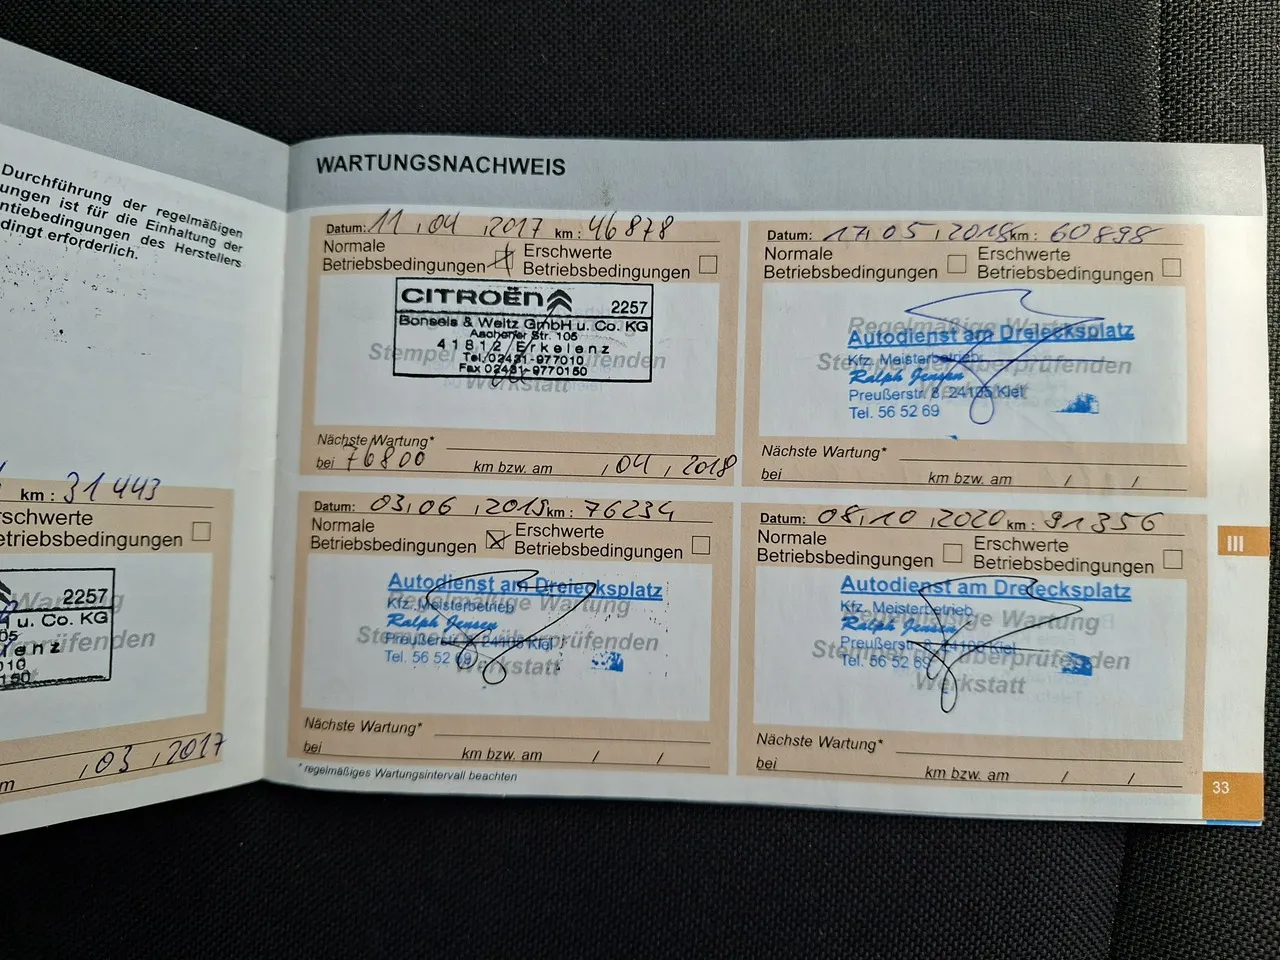 Durchführung der regelmäßigen
ungen ist für die Einhaltung der
ntiebedingungen des Herstellers
dingt erforderlich.
km : 31 443
rschwerte
etriebsbedingungen
2257
u. Co. KG
05
lenz
010
150
, 03 , 2017
m
WARTUNGSNACHWEIS
Datum: 11 , 04 , 2017 km : 46878
Normale
Betriebsbedingungen
Erschwerte
Betriebsbedingungen
CITROËN
2257
Bonsels & Weitz GmbH u. Co. KG
Aachener Str. 105
41812 Erkelenz
Tel. 02431-977010
Fax 02431-9770150
Stempel der überprüfenden
Werkstatt
Nächste Wartung*
bei 76800 km bzw. am , 04 , 2018
Datum: 17, 05 , 2018 km : 60898
Normale
Betriebsbedingungen
Erschwerte
Betriebsbedingungen
Regelmäßige Wartung
Autodienst am Dreiecksplatz
Kfz. Meisterbetrieb
Stempel der überprüfenden
Ralph Jensen
Werkstatt
Preußerstr. 8, 24105 Kiel
Tel. 56 52 69
Nächste Wartung*
bei km bzw. am / /
Datum: 03, 06 , 2019 km : 76234
Normale
Betriebsbedingungen
Erschwerte
Betriebsbedingungen
Autodienst am Dreiecksplatz
Regelmäßige Wartung
Kfz. Meisterbetrieb
Ralph Jensen
Stempel der überprüfenden
Preußerstr. 8, 24105 Kiel
Tel. 56 52 69
Werkstatt
Nächste Wartung*
bei km bzw. am / /
* regelmäßiges Wartungsintervall beachten
Datum: 08, 10 , 2020 km : 91356
Normale
Betriebsbedingungen
Erschwerte
Betriebsbedingungen
Autodienst am Dreiecksplatz
Kfz. Meisterbetrieb
Regelmäßige Wartung
Ralph Jensen
Preußerstr. 8, 24105 Kiel
Stempel der überprüfenden
Tel. 56 52 69
Werkstatt
Nächste Wartung*
bei km bzw. am / /
III
33